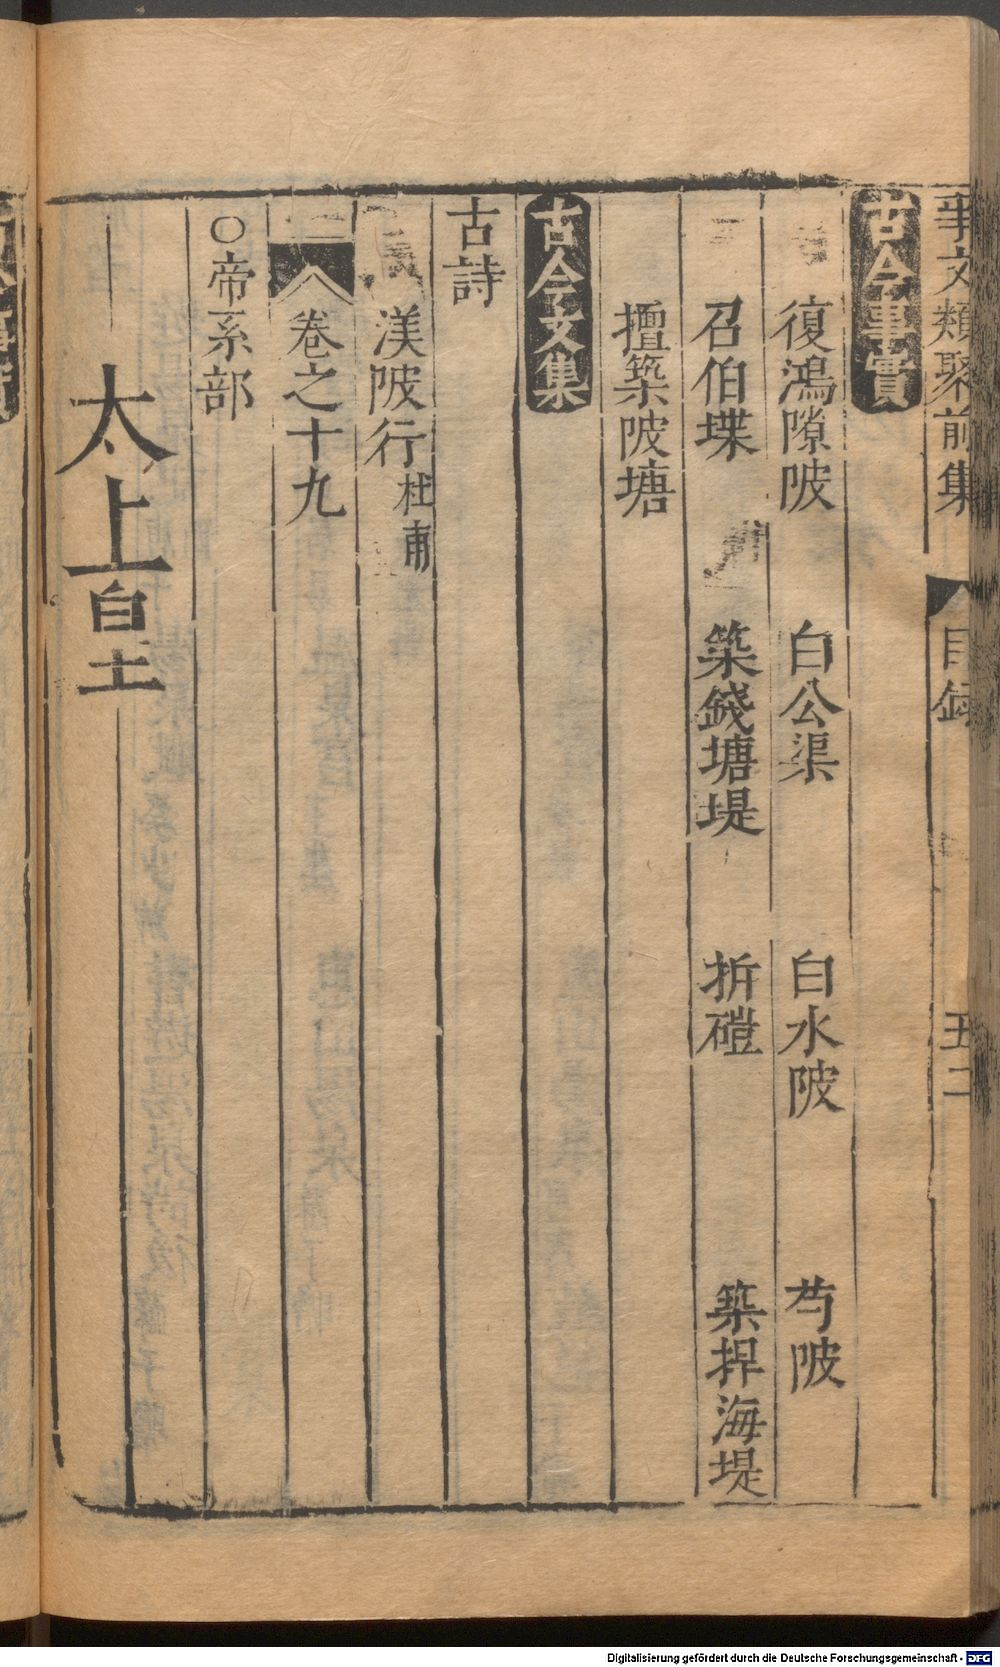 事文類聚前集 目録 五二
古今事實
復鴻隙陂 白公渠 白水陂 芍陂
召伯堞 築錢塘堤 折磑 築捍海堤
擅築陂塘
古今文集
古詩
渼陂行 杜甫
卷之十九
○帝系部
太上皇
Digitalisierung gefördert durch die Deutsche Forschungsgemeinschaft - DFG